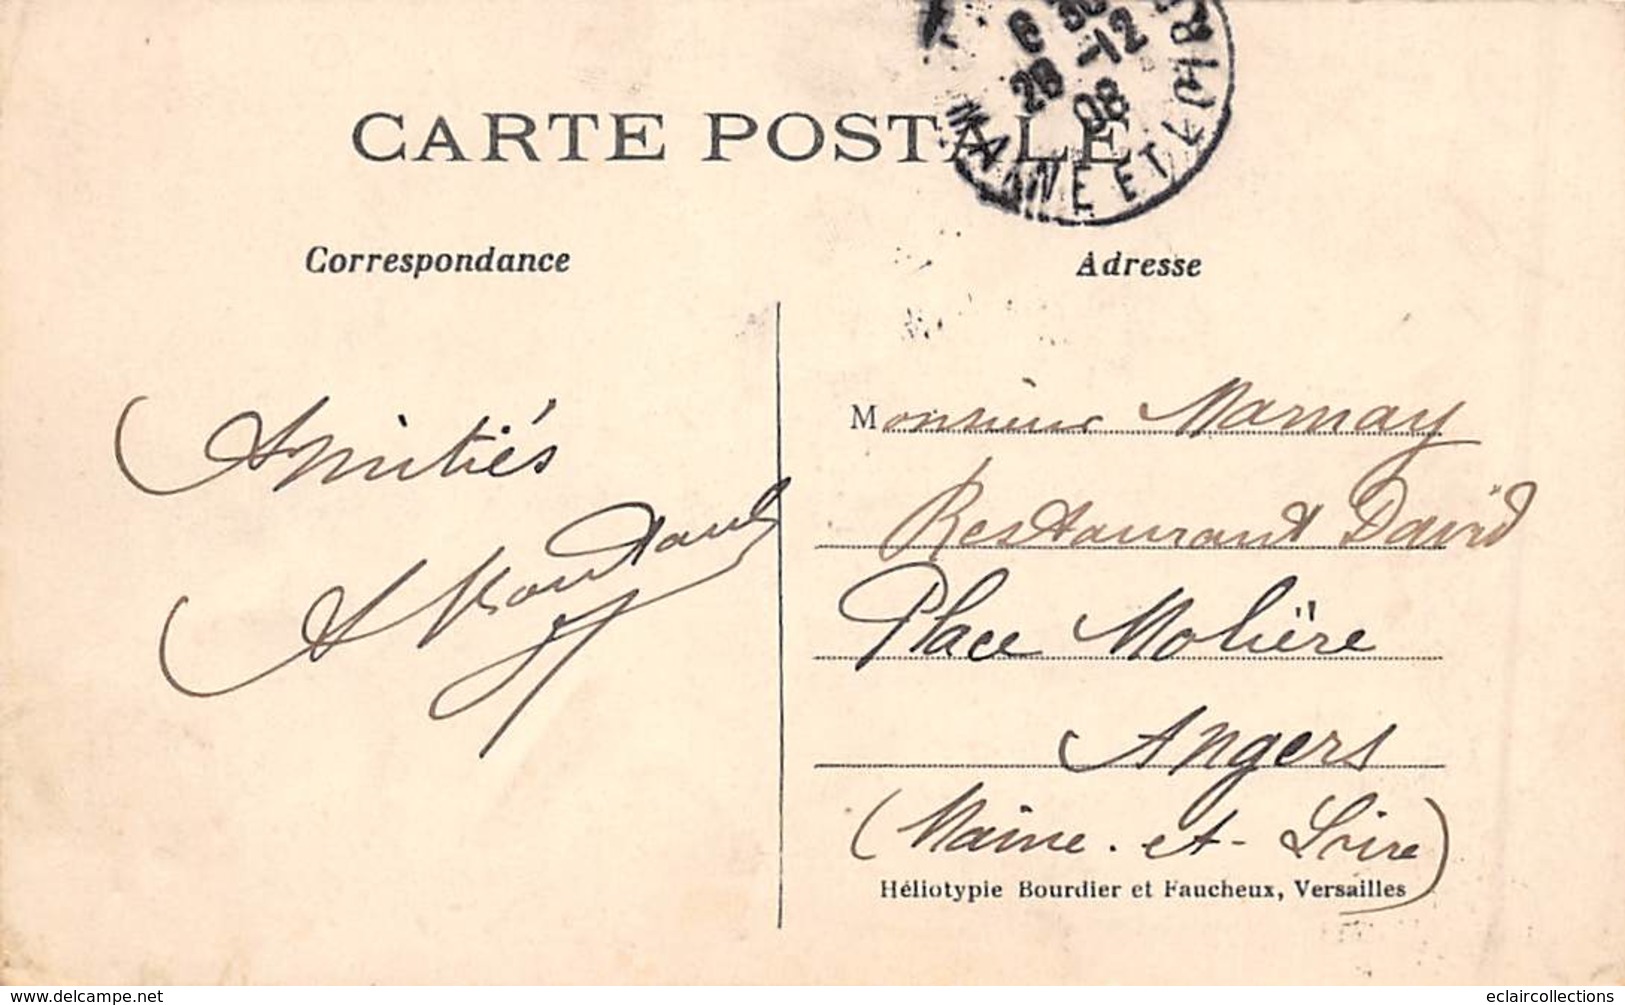 6 30
28 -12
08
MAINE ET LOIRE
CARTE POSTALE
Correspondance
Adresse
Amitiés
Monsieur Marnay
Restaurant David
Place Molière
Angers
(Maine-et-Loire)
Héliotypie Bourdier et Faucheux, Versailles
delcampe.net
eclaircollections